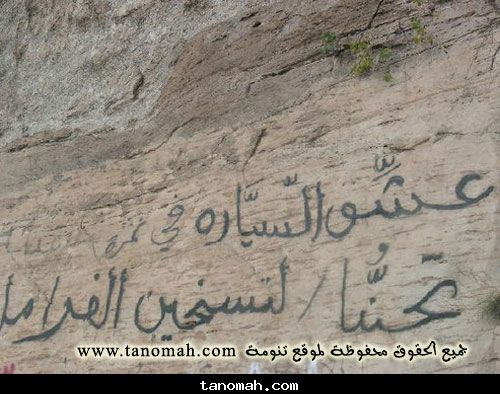 عشّق السّيّاره في نمره
تجنُّبا / لتسخين الفرامل
جميع الحقوق محفوظة لموقع تنومة www.tanomah.com
tanomah.com